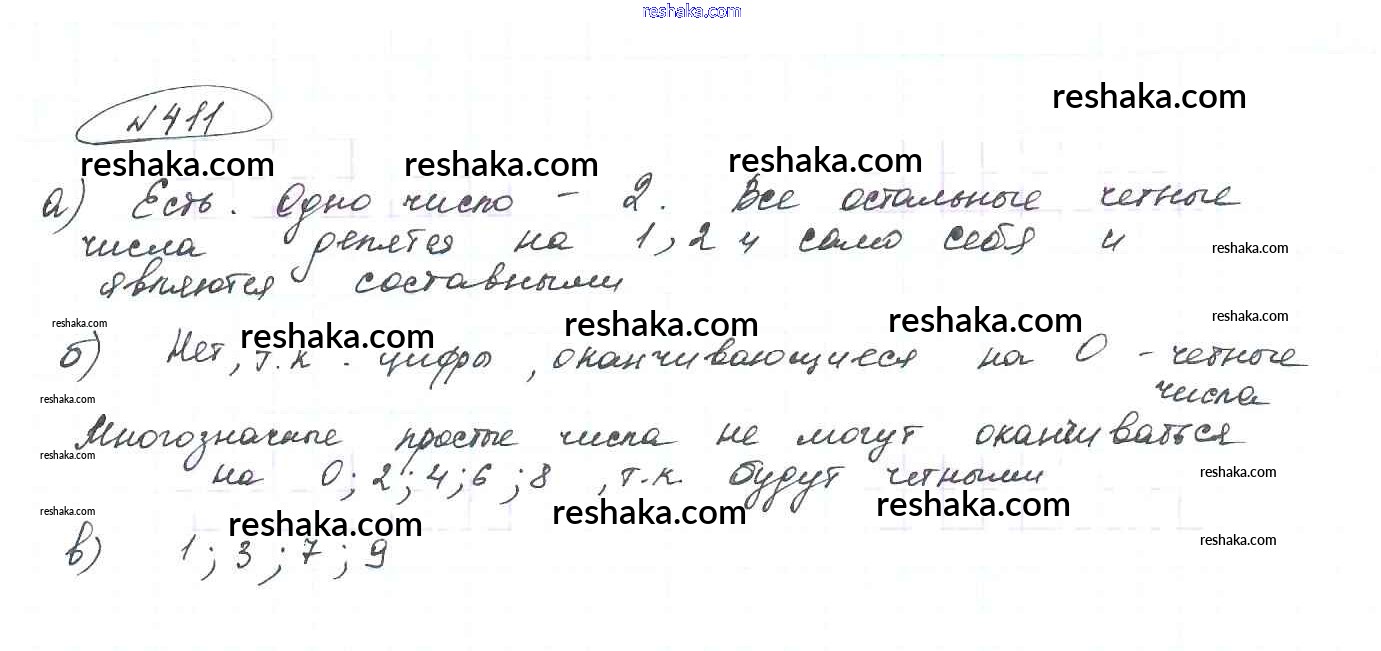 reshaka.com
reshaka.com
№ 411
reshaka.com reshaka.com reshaka.com
а) Есть. Одно число - 2. Все остальные четные
числа делятся на 1, 2 и само себя и
reshaka.com
являются составными
reshaka.com reshaka.com reshaka.com
reshaka.com reshaka.com
б) Нет, т.к. цифры, оканчивающиеся на 0 - четные
числа
reshaka.com
Многозначные простые числа не могут оканчиваться
reshaka.com
на 0; 2; 4; 6; 8, т.к. будут четными
reshaka.com
reshaka.com reshaka.com reshaka.com reshaka.com
в) 1; 3; 7; 9
reshaka.com